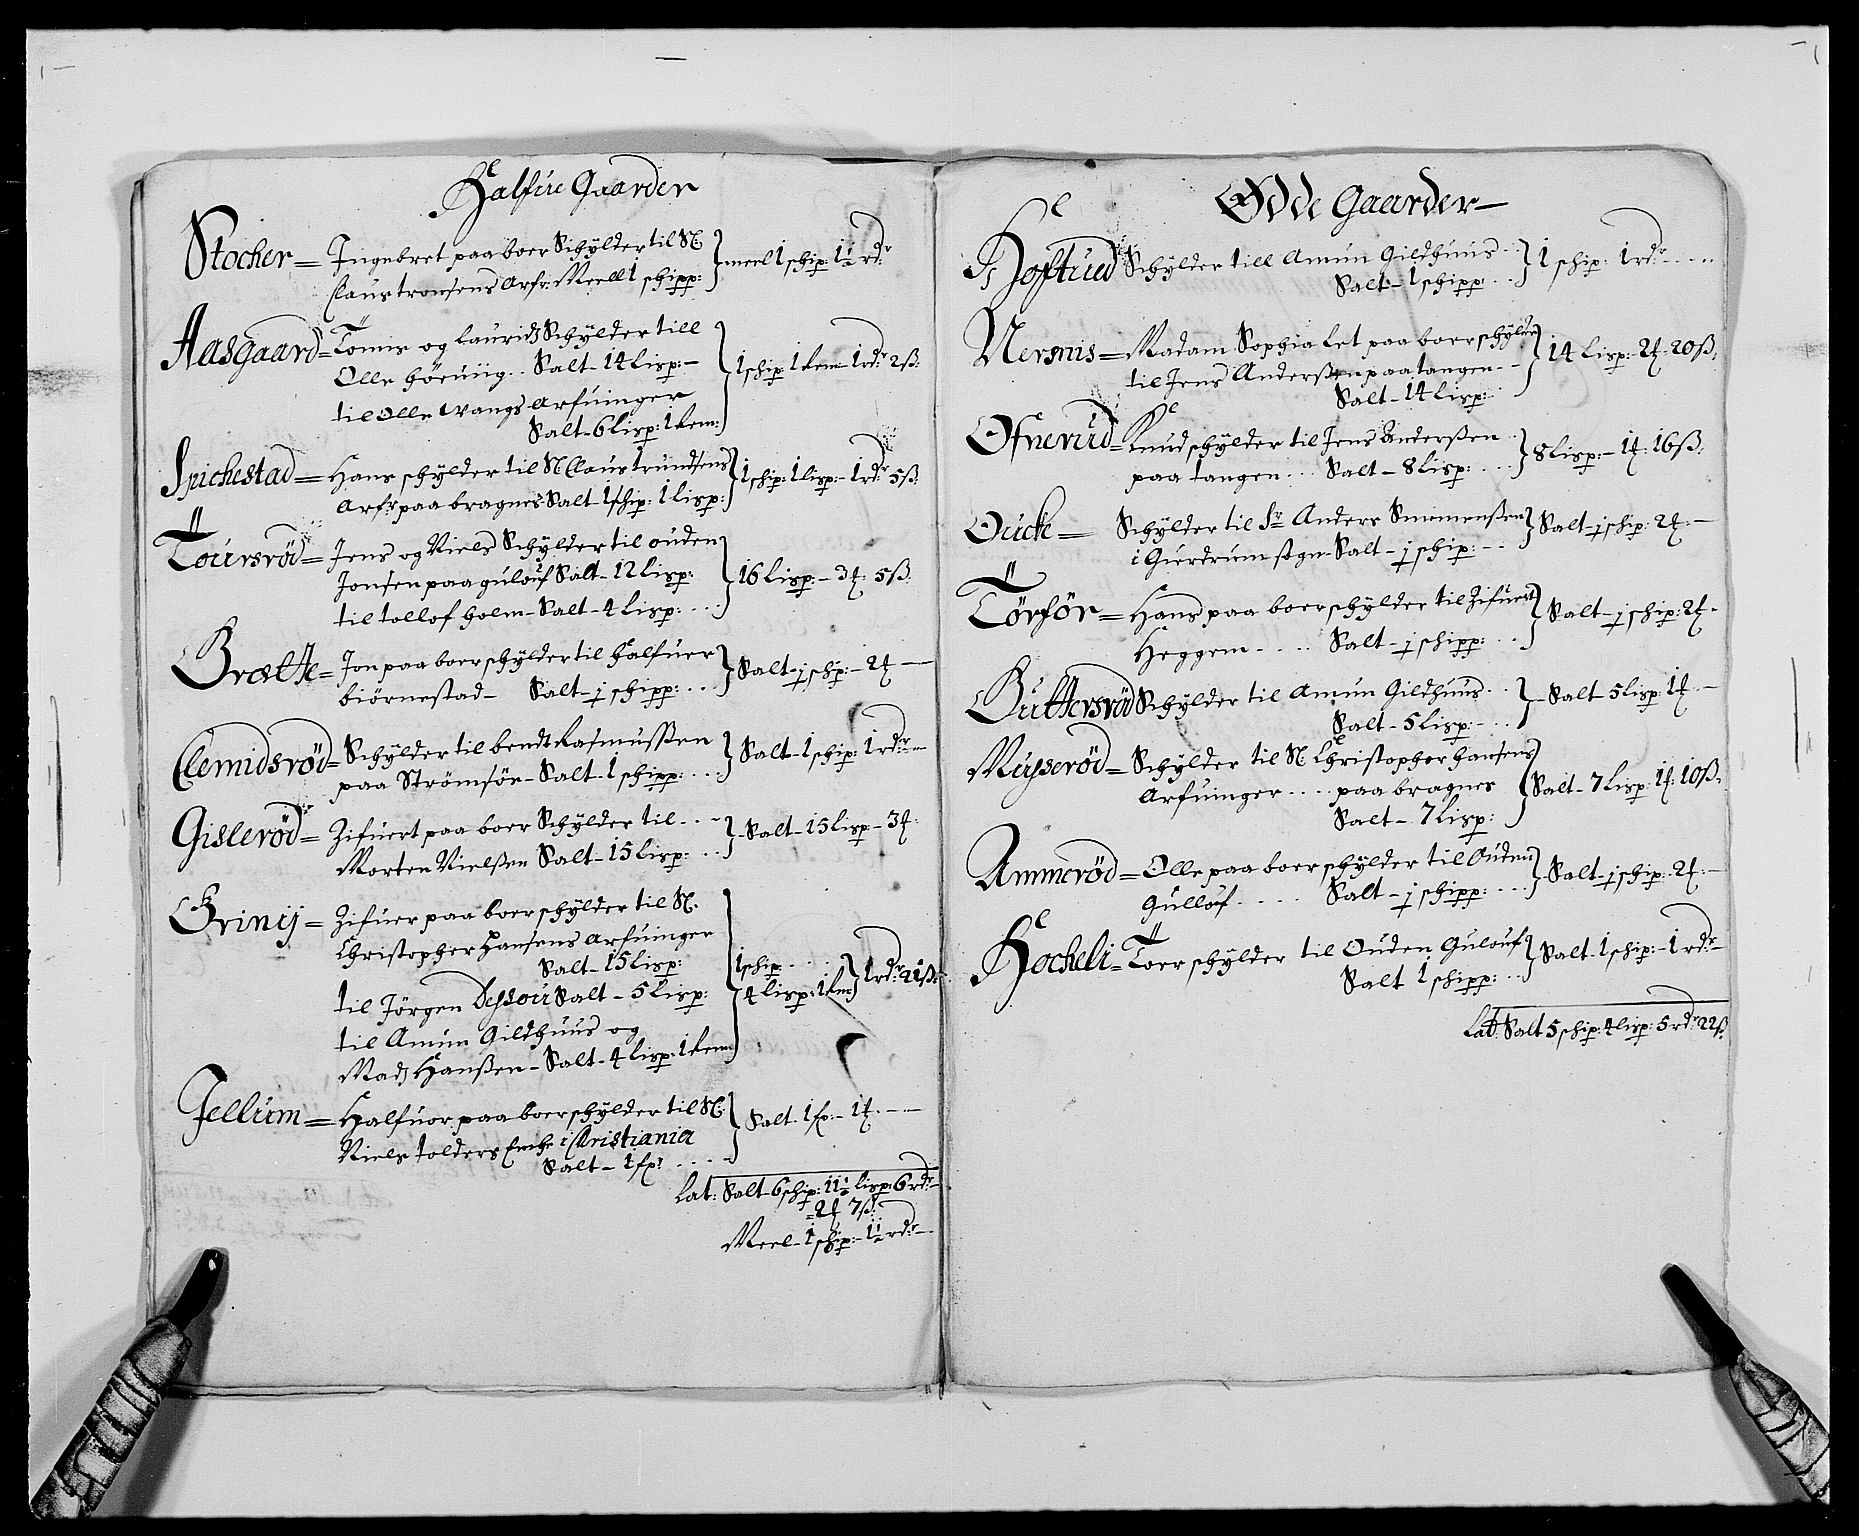 Halfue Gaarder
Stocher = Ingebret paa boer Schylder til Sl.
Claus tronsens Arfr: Meell 1 schipp: } meel 1 schip: 1½ rdr
Aasgaard = Tønnis og Lauridz Schylder till
Olle høeuiig.. Salt - 14 lisp: -
til Olle wangs arfuinger
Salt - 6 Lisp: 1 rem: } 1 schip 1 rem - 1 rdr 2 ß
Spichestad = Hans schylder til Sl Claus trundsens
Arfr paa bragnes Salt 1 schip: 1 lisp: } 1 schip: 1 lisp: - 1 rdr 5 ß
Toursrød = Jens og Niels Schylder til ouden
Jonsen paa gulouf Salt - 12 lisp:
til tollof holm - Salt - 4 lisp: } 16 lisp: - 3 ƒ: 5 ß
Brætte = Jon paa boer schylder til halfuer
biörnestad - Salt - j schipp: } Salt - j schip: - 2 ƒ -
Clemidsrød = Schylder til bendt Rasmussen
paa Strømsøe - Salt - 1 schipp: } Salt - 1 schip: 1 rdr -
Gislerød = Zifuert paa boer Schylder til
Morten Nielssen Salt - 15 lisp: } Salt - 15 lisp - 3 ƒ:
Grinij = Zifuer paa boer schylder til Sl.
Christopher Hansens arfuinger
Salt - 15 lisp:
til Jörgen Salt - 5 lisp:
til Amun Gildhuus og
Madz Hanssen - Salt - 4 lisp: 1 rem: } 1 schip
4 lisp: 1 rem } 1 rdr 21 ß
Jellum = Halfuor paa boer schylder til Sl.
Niels tolders Encke i Christiania
Salt - 1 fx: } Salt. 1 fx. - 1 ƒ. -
Lat: Salt - 6 schip: 11½ lisp: 6 rdr
2 ƒ 7 ß:
Meel - 1 schip: - 1½ rdr -
Ødde Gaarder -
Hoftued Schylder till Amun Gildhuus
Salt - 1 schipp: } 1 schip: 1 rdr
Nersnis = Madam Sophia let paa boer schylder
til Jens Anderssen paa tangen -
Salt - 14 lisp: } 14 Lisp: 2 ƒ: 20 ß
Ofnerud = Knud schylder til Jens Anderssen
paa tangen ... Salt - 8 lisp: } 8 lisp: - 1 ƒ: 16 ß
Oucke = Schylder til Sr Anders Simmenssen
i Gierdrum sogn - Salt - j schip: } Salt - j schip: 2 ƒ. -
Törför = Hans paa boer schylder til Zifuert
Heggem .... Salt - j schipp: } Salt - j schip: 2 ƒ -
Buttersrød Schylder til Amun Gildhuus
Salt - 5 lisp: } Salt 5 lisp: 1 ƒ. -
Muyserød = Schylder til Sl Christopher hansens
Arfuinger .... paa bragnes
Salt - 7 lisp: } Salt - 7 lisp: 1 ƒ: 10 ß
Ammerød = Olle paa boer schylder til Ouden
Gullouf ..... Salt - j schipp: } Salt - j schip: 2 ƒ. -
Hocheli = Toer schylder til Ouden Gulouf
Salt 1 schipp: } Salt. 1 schip: - 1 rdr -
Lat: Salt 5 schip: 4 lisp: 5 rdr 22 ß